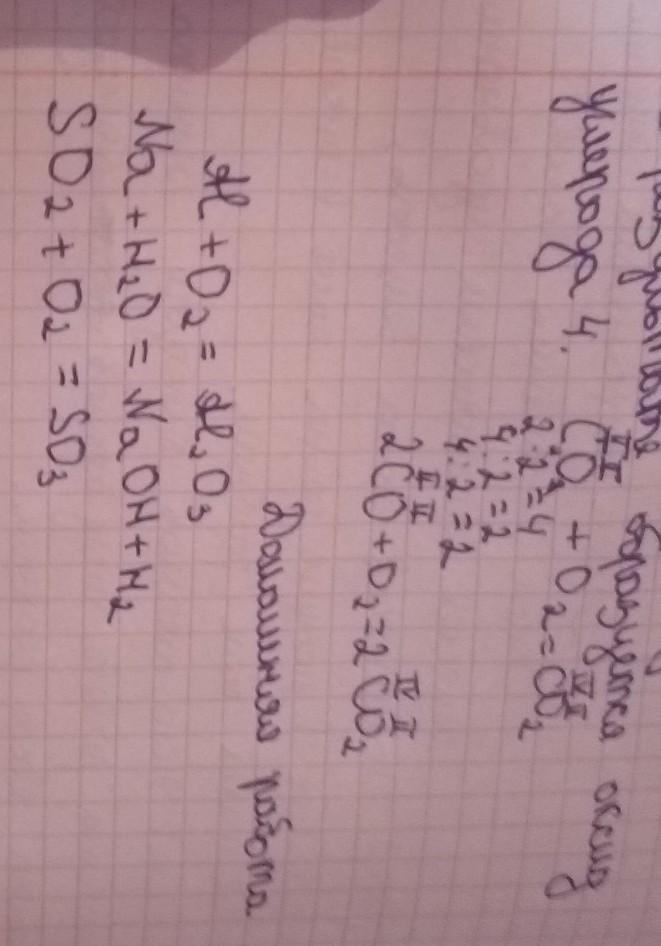 образуется оксид
углерода 4.
CO + O₂ = CO₂
II II IV II
2·2=4
4:2=2
4:2=2
2CO + O₂ = 2CO₂
II II IV II
Домашняя работа
Al + O₂ = Al₂O₃
Na + H₂O = NaOH + H₂
SO₂ + O₂ = SO₃